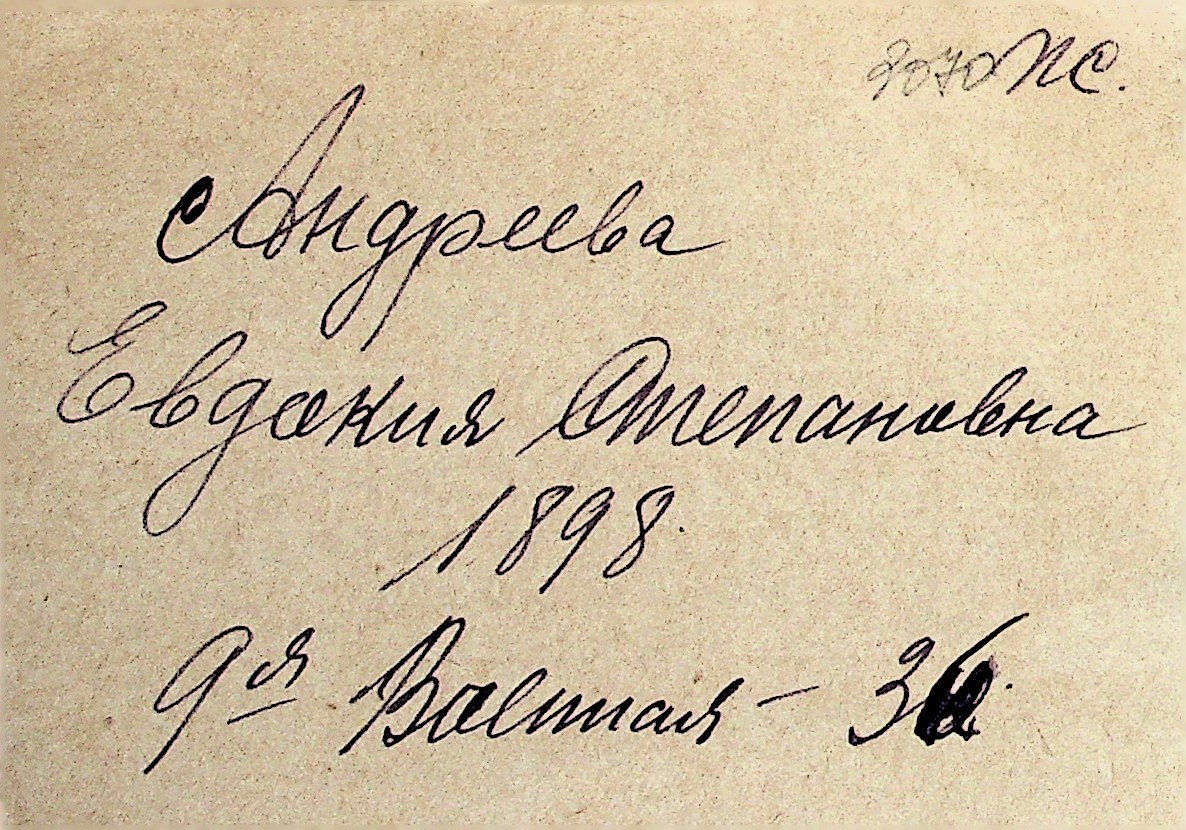 ПС.
Андреева
Евдокия Степановна
1898.
9ая Военная - 36.